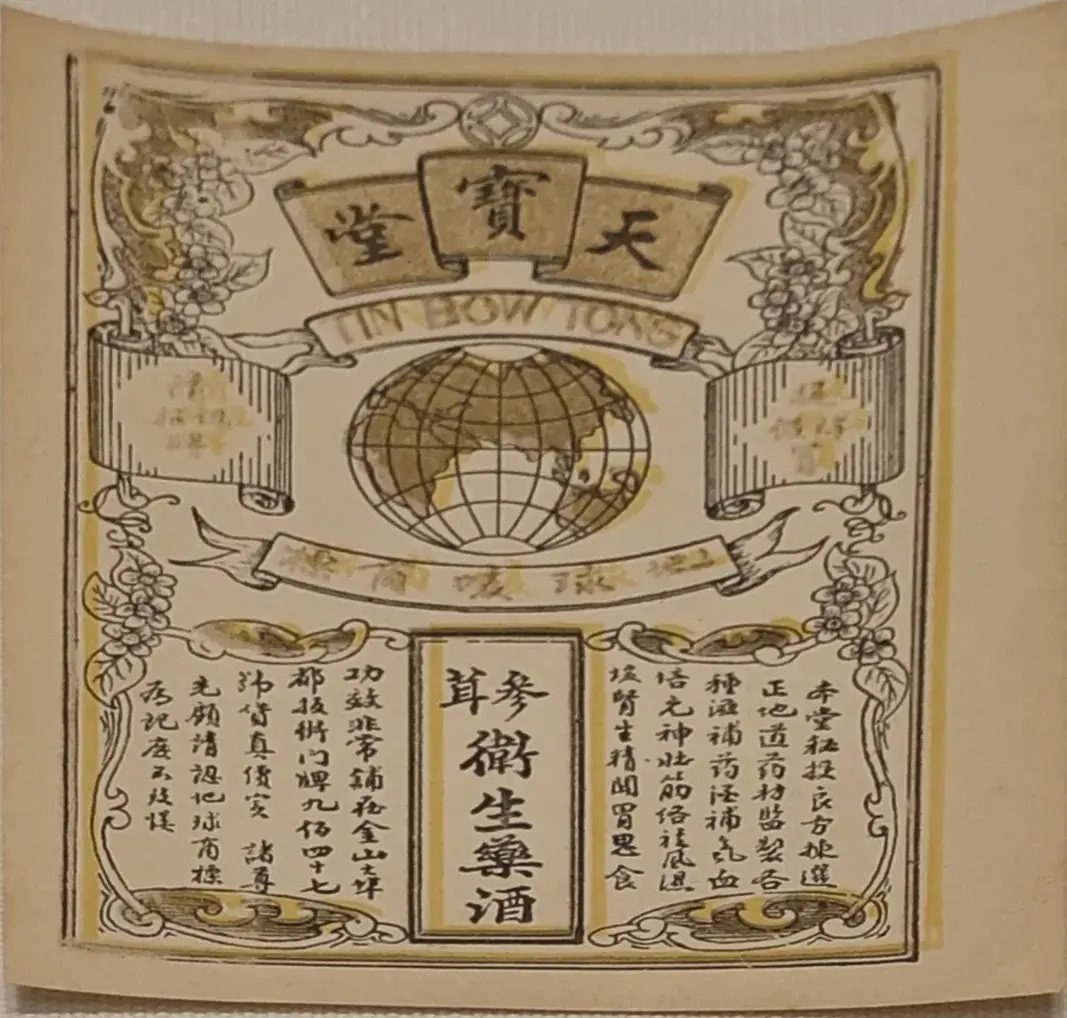 天寶堂
TIN BOW TONG
地球嘜商標
本堂秘授良方揀選
正地道药材監製各
種滋補药酒補气血
培元神壯筋络祛風湿
腎生精開胃思食
參茸
衛生藥酒
功效非常舖在金山大埠
都板街门牌九佰四十七
號貨真價实 諸尊
光顧請認地球商標
為記庶不致悮